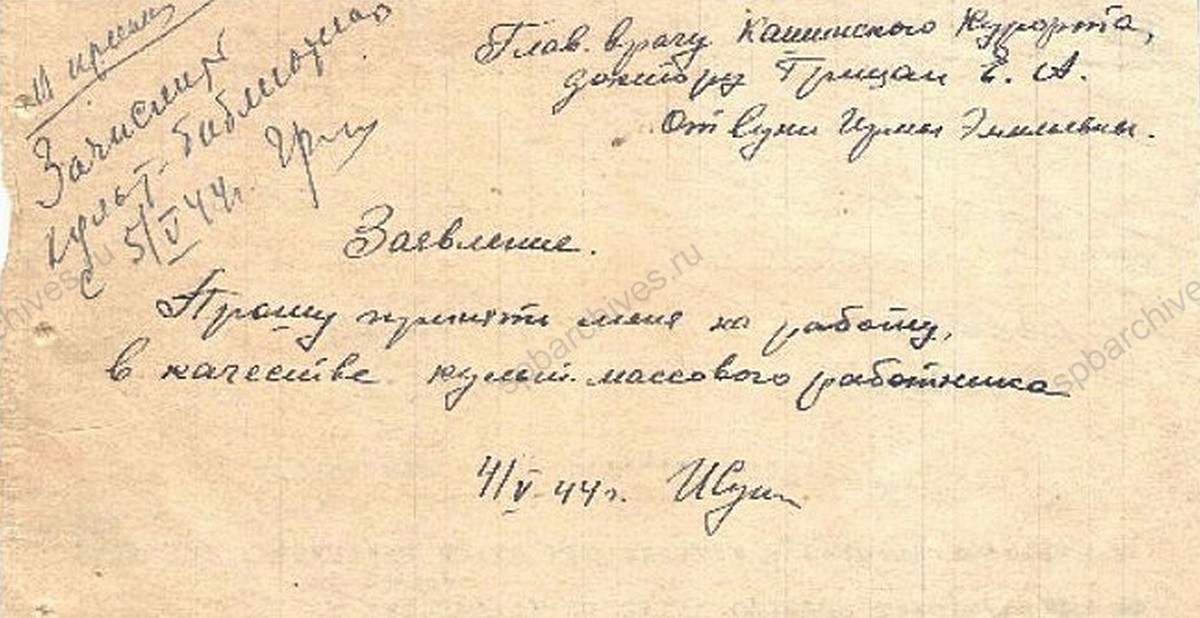 В приказ
Зачислить
культ-библиотекар
с 5/V 44 г.
Глав. врачу Кашинского Курорта,
доктору Грицай Е. А.
От Ирмы Эмильевны.
Заявление.
Прошу принять меня на работу,
в качестве культ. массового работника
4/V 44 г.
spbarchives.ru